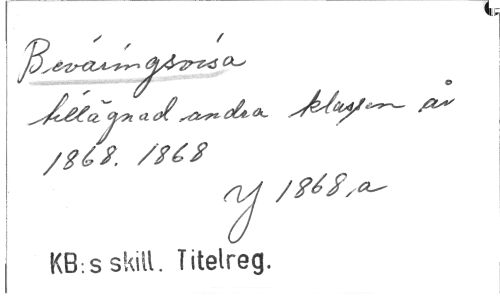 Beväringsvisa
tillägnad andra klassen år
1868. 1868
Y 1868,a
KB:s skill. Titelreg.